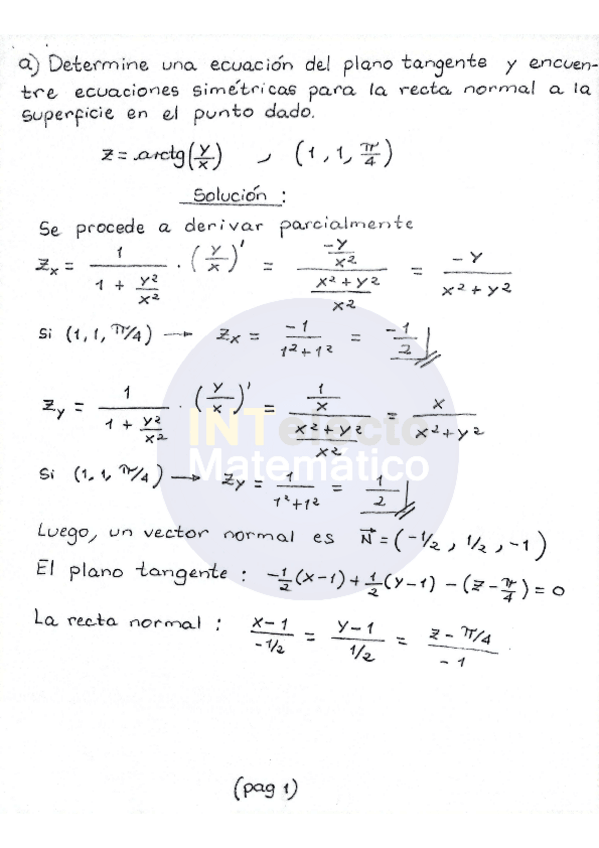 a) Determine una ecuación del plano tangente y encuen-
tre ecuaciones simétricas para la recta normal a la
superficie en el punto dado.
z = arctg(y/x) , (1, 1, π/4)
Solución:
Se procede a derivar parcialmente
Zx = 1/(1 + y²/x²) · (y/x)' = (-y/x²)/((x² + y²)/x²) = -y/(x² + y²)
Si (1, 1, π/4) → Zx = -1/(1² + 1²) = -1/2
Zy = 1/(1 + y²/x²) · (y/x)' = (1/x)/((x² + y²)/x²) = x/(x² + y²)
INTelecto
Matemático
Si (1, 1, π/4) → Zy = 1/(1² + 1²) = 1/2
Luego, un vector normal es N⃗ = (-1/2, 1/2, -1)
El plano tangente: -1/2(x-1) + 1/2(y-1) - (z - π/4) = 0
La recta normal: (x-1)/(-1/2) = (y-1)/(1/2) = (z - π/4)/(-1)
(pag 1)